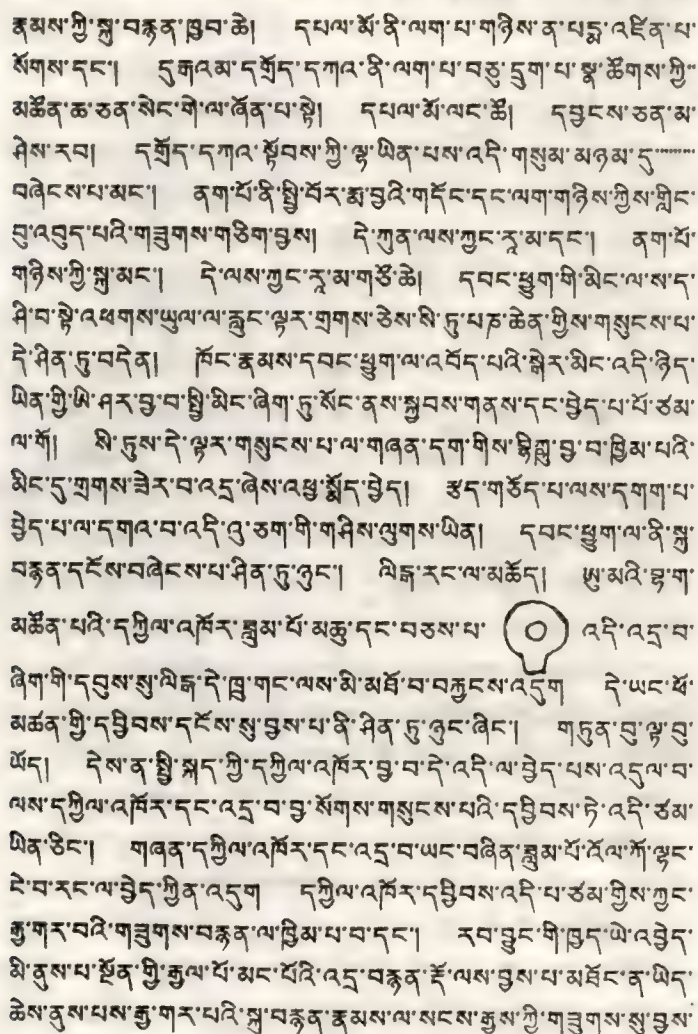 རྣམས་ཀྱི་སྐུ་བརྙན་ཁྱབ་ཆེ། དཔལ་མོ་ནི་ལག་པ་གཉིས་ན་པདྨ་འཛིན་པ་
སོགས་དང་། དུརྒའམ་དགྲོད་དཀའ་ནི་ལག་པ་བཅུ་དྲུག་པ་སྣ་ཚོགས་ཀྱི་
མཚོན་ཆ་ཅན་སེང་གེ་ལ་ཞོན་པ་སྟེ། དཔལ་མོ་ལང་ཚོ། དབྱངས་ཅན་མ་
ཤེས་རབ། དགྲོད་དཀའ་སྟོབས་ཀྱི་ལྷ་ཡིན་པས་འདི་གསུམ་མཉམ་དུ་
བཞེངས་པ་མང་། ནག་པོ་ནི་སྤྱི་བོར་རྨ་བྱའི་གདོང་དང་ལག་གཉིས་ཀྱིས་གླིང་
བུ་འབུད་པའི་གཟུགས་གཅིག་བྱས། དེ་ཀུན་ལས་ཀྱང་རཱ་མ་དང་། ནག་པོ་
གཉིས་ཀྱི་སྐུ་མང་། དེ་ལས་ཀྱང་རཱ་མ་གཙོ་ཆེ། དབང་ཕྱུག་གི་མིང་ལ་ས་ད་
ཤི་བ་སྟེ་འཕགས་ཡུལ་ལ་རླུང་ལྟར་གྲགས་ཅེས་སི་ཏུ་པཎ་ཆེན་གྱིས་གསུངས་པ་
དེ་ཤིན་ཏུ་བདེན། ཁོང་རྣམས་དབང་ཕྱུག་ལ་འབོད་པའི་སྒེར་མིང་འདི་ཉིད་
ཡིན་གྱི་ཨི་ཤར་བྱ་བ་སྤྱི་མིང་ཞིག་ཏུ་སོང་ནས་སྐྱབས་གནས་དང་བྱེད་པ་པོ་ཙམ་
ལ་གོ། སི་ཏུས་དེ་ལྟར་གསུངས་པ་ལ་གཞན་དག་གིས་བྱ་བ་ཁྱིམ་པའི་
མིང་དུ་གྲགས་ཟེར་བ་འདྲ་ཞེས་འཕྱ་སྨོད་བྱེད། རྩད་གཅོད་པ་ལས་དགག་པ་
བྱེད་པ་ལ་དགའ་བ་འདི་འུ་ཅག་གི་གཤིས་ལུགས་ཡིན། དབང་ཕྱུག་ལ་ནི་སྐུ་
བརྙན་དངོས་བཞེངས་པ་ཤིན་ཏུ་ཉུང་། ལིངྒ་རང་ལ་མཆོད། ཨུ་མའི་བྷ་ག་
མཚོན་པའི་དཀྱིལ་འཁོར་ཟླུམ་པོ་མཆུ་དང་བཅས་པ་ འདི་འདྲ་བ་
ཞིག་གི་དབུས་སུ་ལིངྒ་དེ་ཁྲུ་གང་ལས་མི་མཐོ་བ་བརྐྱངས་འདུག དེ་ཡང་ཕོ་
མཚན་གྱི་དབྱིབས་དངོས་སུ་བྱས་པ་ནི་ཤིན་ཏུ་ཉུང་ཞིང་། གཏུན་བུ་ལྟ་བུ་
ཡོད། དེས་ན་སྤྱི་སྐད་ཀྱི་དཀྱིལ་འཁོར་བྱ་བ་དེ་འདི་ལ་བྱེད་པས་འདུལ་བ་
ལས་དཀྱིལ་འཁོར་དང་འདྲ་བ་བྱ་སོགས་གསུངས་པའི་དབྱིབས་ཏེ་འདི་ཙམ་
ཡིན་ཅིང་། གཞན་དཀྱིལ་འཁོར་དང་འདྲ་བ་ཡང་བཞིན་ཟླུམ་པོ་འོལ་ཀོ་ལྷང་
ངེ་བ་རང་ལ་བྱེད་ཀྱིན་འདུག དཀྱིལ་འཁོར་དབྱིབས་འདི་པ་ཙམ་གྱིས་ཀྱང་
རྒྱ་གར་བའི་གཟུགས་བརྙན་ལ་ཁྱིམ་པ་བ་དང་། རབ་བྱུང་གི་ཁྱད་ཡེ་འབྱེད་
མི་ནུས་པ་སྔོན་གྱི་རྒྱལ་པོ་མང་པོའི་འདྲ་བརྙན་རྡོ་ལས་བྱས་པ་མཐོང་ན་ཡིད་
ཆེས་ནུས་པས་རྒྱ་གར་པའི་སྐུ་བརྙན་རྣམས་ལ་སངས་རྒྱས་ཀྱི་གཟུགས་སུ་བྱས་